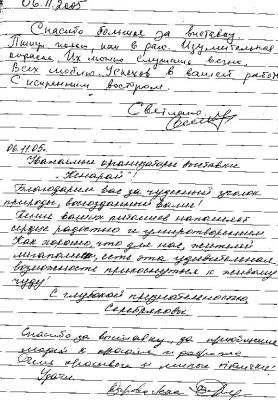 06.11.2005
Спасибо большое за выставку.
Птицы поют, как в раю. Изумительная
окраска. Их можно слушать вечно.
Всех люблю. Успехов в вашей работе
С искренним восторгом.
Светлана
06.11.05.
Уважаемые организаторы выставки
"Кенарай"!
Благодарим вас за чудесный уголок
природы, воссозданный вами!
Пение ваших питомцев наполняет
сердце радостью и умиротворением
Как хорошо, что для нас, жителей
мегаполиса, есть эта удивительная
возможность прикоснуться к живому
чуду!
С глубокой признательностью
Серебряковы.
Спасибо за выставку, за приобщение
людей к красоте и
Очень красивые и милые птички.
Удачи.